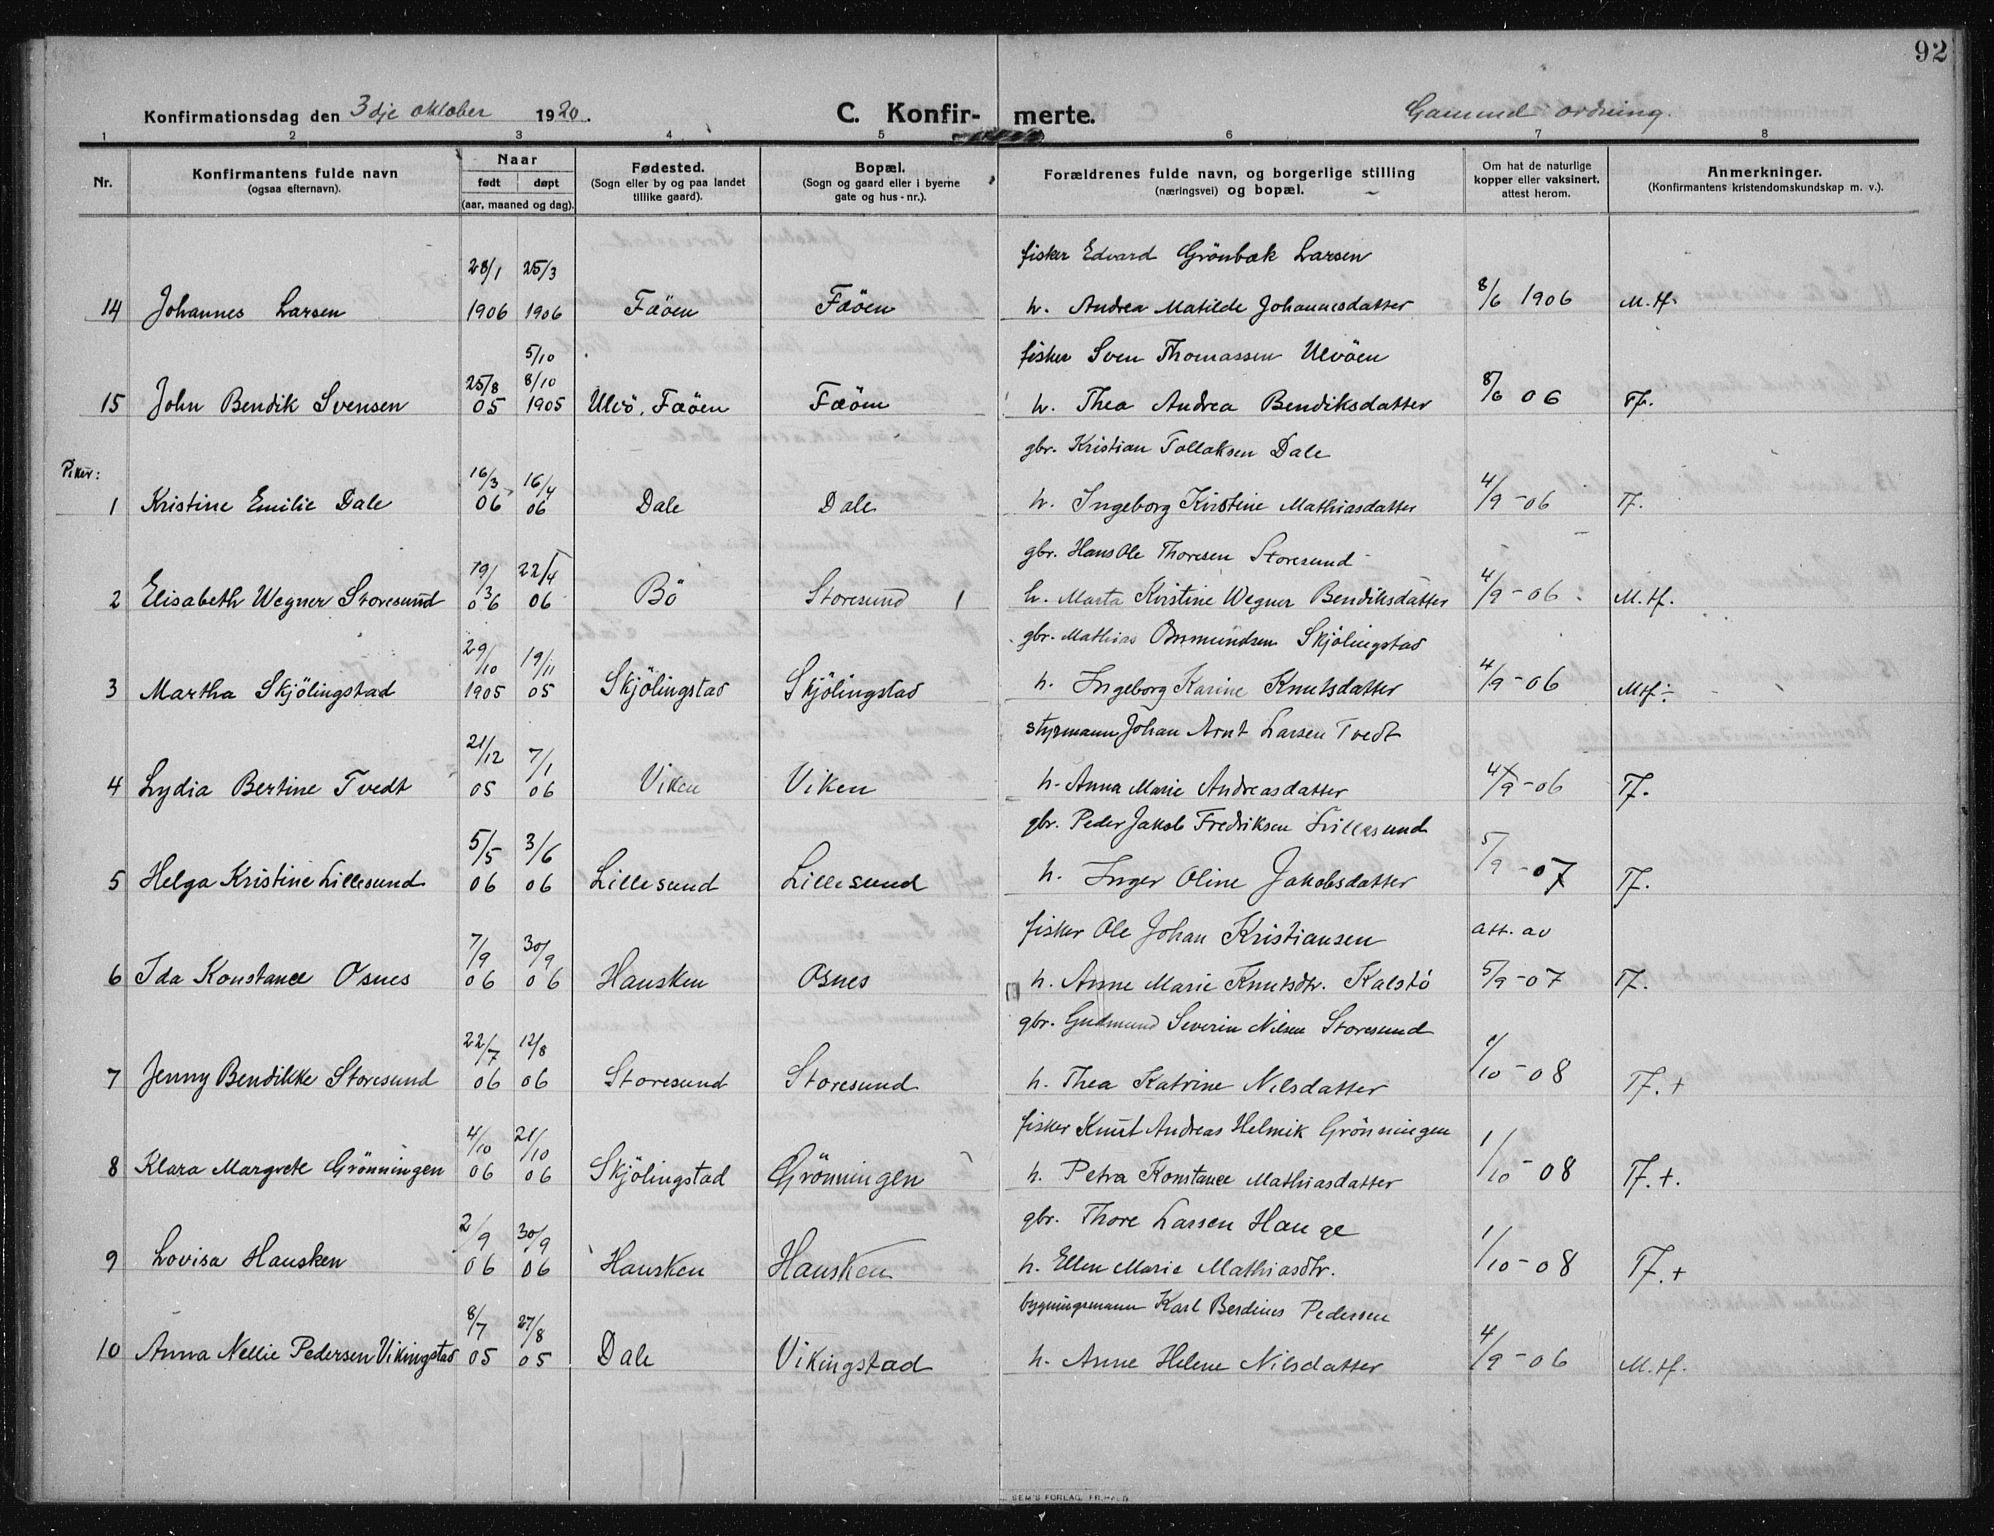 92
Konfirmationsdag den 3dje oktober 1920. C. Konfirmerte. Gammel ordning.
1 2 3 4 5 6 7 8
Nr. Konfirmantens fulde navn (ogsaa efternavn). Naar født døpt (aar, maaned og dag). Fødested. (Sogn eller by og paa landet tillike gaard). Bopæl. (Sogn og gaard eller i byerne gate og hus-nr.). Forældrenes fulde navn, og borgerlige stilling (næringsvei) og bopæl. Om hat de naturlige kopper eller vaksinert, attest herom. Anmerkninger. (Konfirmantens kristendomskundskap m. v.).
28/1 25/3 fisker Edvard Grönbæk Larsen
14 Johannes Larsen 1906 1906 Fæöen Fæöen h. Andrea Matilde Johannesdatter 8/6 1906 M.tf.
5/10 fisker Sven Thomassen Ulvöen
15 John Bendik Svensen 25/8 05 8/10 1905 Ulvö, Fæöen Fæöen h. Thea Andrea Bendiksdatter 8/6 06 Tf.
gbr. Kristian Tollaksen Dale
Piker:
1 Kristine Emilie Dale 16/3 06 16/4 06 Dale Dale h. Ingeborg Kirstine Mathiasdatter 4/9-06 Tf.
gbr. Hans Ole Thoresen Storesund
2 Elisabeth Wegner Storesund 19/3 06 22/4 06 Bö Storesund h. Marta Kirstine Wegner Bendiksdatter 4/9-06 M.tf.
gbr. Mathias Osmundsen Skjölingstad
3 Martha Skjölingstad 29/10 1905 19/11 05 Skjölingstad Skjölingstad h. Ingeborg Karine Knutsdatter 4/9-06 Mtf.
styrmann Johan Arnt Larsen Tvedt
4 Lydia Bertine Tvedt 21/12 05 7/1 06 Viken Viken h. Anna Marie Andreasdatter 4/9-06 Tf.
gbr. Peder Jakob Fredriksen Lillesund
5 Helga Kristine Lillesund 5/5 06 3/6 06 Lillesund Lillesund h. Inger Oline Jakobsdatter 5/9-07 Tf.
fisker Ole Johan Kristiansen att. av
6 Ida Konstance Osnes 7/9 06 30/9 06 Hausken Osnes h. Anne Marie Knutsdtr. Kalstö 5/9-07 Tf.
gbr. Gudmund Severin Nilsen Storesund
7 Jenny Bendikke Storesund 22/7 06 12/8 06 Storesund Storesund h. Thea Katrine Nilsdatter 1/10-08 Tf.+
fisker Knut Andreas Helmik Grönningen
8 Klara Margrete Grönningen 4/10 06 21/10 06 Skjölingstad Grönningen h. Petra Konstance Mathiasdatter 1/10-08 Tf.+.
gbr. Thore Larsen Hauge
9 Lovisa Hausken 2/9 06 30/9 06 Hausken Hausken h. Ellen Marie Mathiasdtr. 1/10-08 Tf.+
bygningsmann Karl Berdines Pedersen
10 Anna Nellie Pedersen Vikingstad 8/7 05 27/8 05 Dale Vikingstad h. Anne Helene Nilsdatter 4/9-06 M.tf.
SEM'S FORLAG, FR.HALD